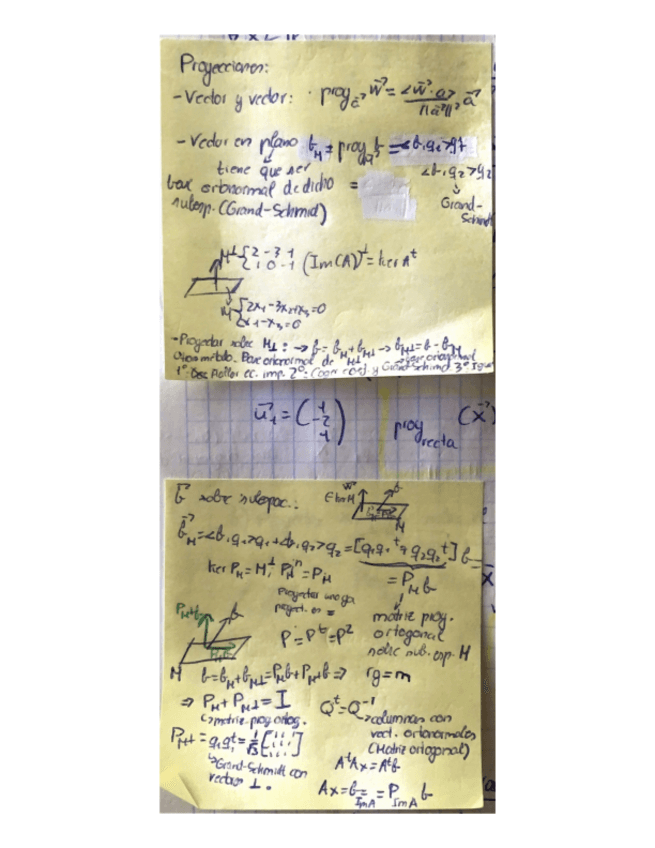 Proyecciones:
-Vector y vector: · proy a⃗ w⃗ = <w⃗·a> / ||a⃗||² a⃗
-Vector en plano b_M = proy b = <b,q1>q1
tiene que ser <b,q2>q2
base ortonormal de dicho =
subesp. (Grand-Schmid) Grand-Schmidt
M⊥ { 2 -3 1
1 0 -1 (Im(A))^⊥ = ker A^t
M { 2x1-3x2+x3=0
x1-x3=0
-Proyectar sobre M⊥: → b = b_M + b_M⊥ → b_M⊥ = b - b_M
Otro método. Base ortonormal de M⊥
1º Hallar ec. imp. 2º: Coger coef. y Grand-Schmid 3º Igual
u⃗1 = (1
-2
1)
proy recta (x⃗)
b⃗ sobre subespac.:
w⃗ b
M
b⃗_M = <b,q1>q1 + <b,q2>q2 = [q1q1^t + q2q2^t] b =
ker P_M = M⊥, P_M^n = P_M
= P_M b
Proyectar una ga
proyect. es =
matriz proy.
ortogonal
sobre sub.esp. M
P = P^t = P²
P_M⊥b b
M b = b_M + b_M⊥ = P_M b + P_M⊥ b ⇒ rg = m
⇒ P_M + P_M⊥ = I
matriz proy ortog.
Q^t = Q^-1
→ columnas con
vect. ortonormales
(Matriz ortogonal)
P_M⊥ = q1q1^t = 1/3 [1 1 1]
Grand-Schmidt con
vectores ⊥.
A^tAx = A^tb
Ax = b_ImA = P_ImA b